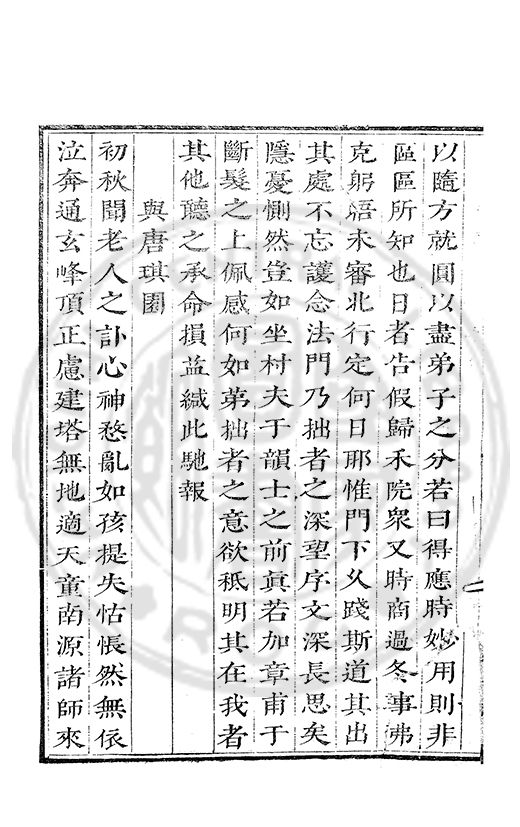 以隨方就圓以盡弟子之分若曰得應時妙用則非
區區所知也日者告假歸禾院眾又時商過冬事弗
克躬悟未審北行定何日耶惟門下久踐斯道其出
其處不忘護念法門乃拙者之深望序文深長思矣
隱憂惻然豈如坐村夫于韻士之前真若加章甫于
斷髮之上佩感何如弟拙者之意欲秪明其在我者
其他聽之承命損益緘此馳報
與唐琪園
初秋聞老人之訃心神愁亂如孩提失怙悵然無依
泣奔通玄峰頂正慮建塔無地適天童南源諸師來